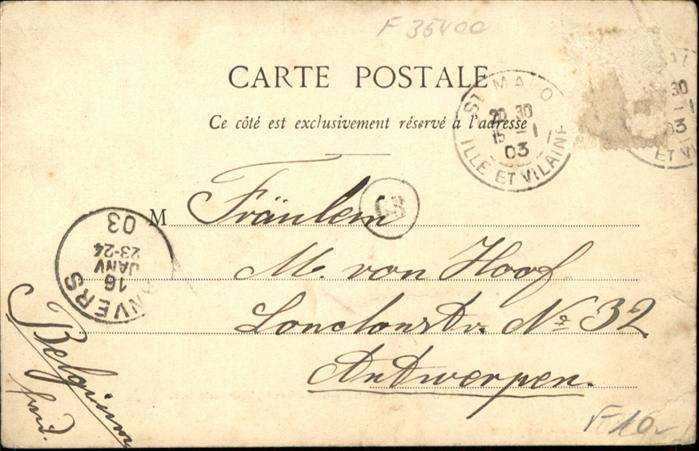 F 35400
CARTE POSTALE
Ce côté est exclusivement réservé à l'adresse
ST MALO
20 30
15 -1
03
ILLE ET VILAINE
30
-1
03
ET VILAINE
M Fräulein
M. von Hoof
Londonstr. No 32
Antwerpen.
ANVERS
16
JANV
23-24
03
Belgium
F 10